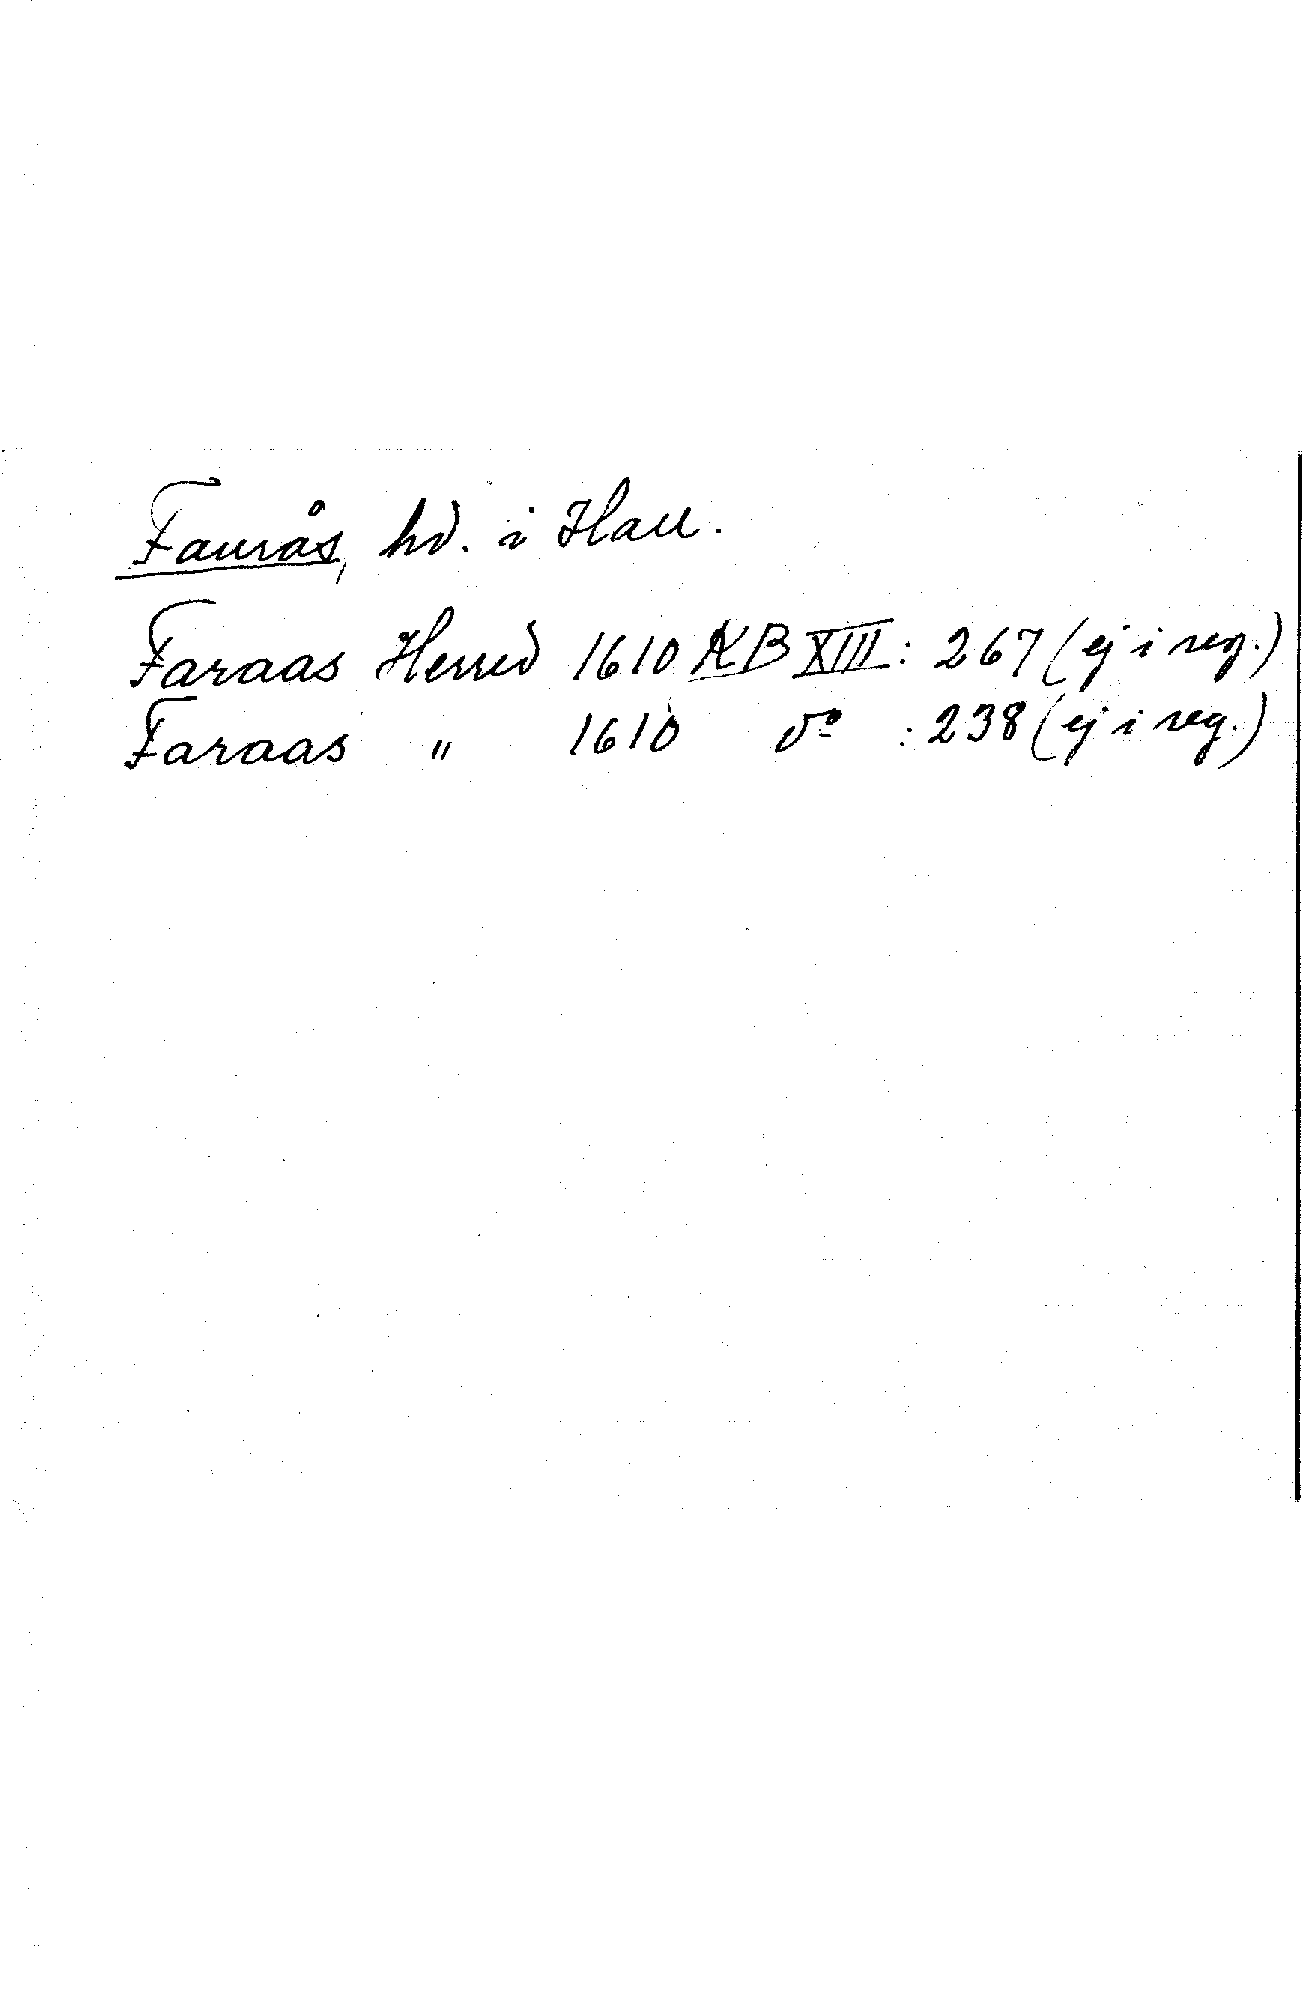 Faurås, hd. i Hall.
Faraas Herred 1610 KB XIII : 267 (ej i reg.)
Faraas " 1610 do : 238 (ej i reg.)